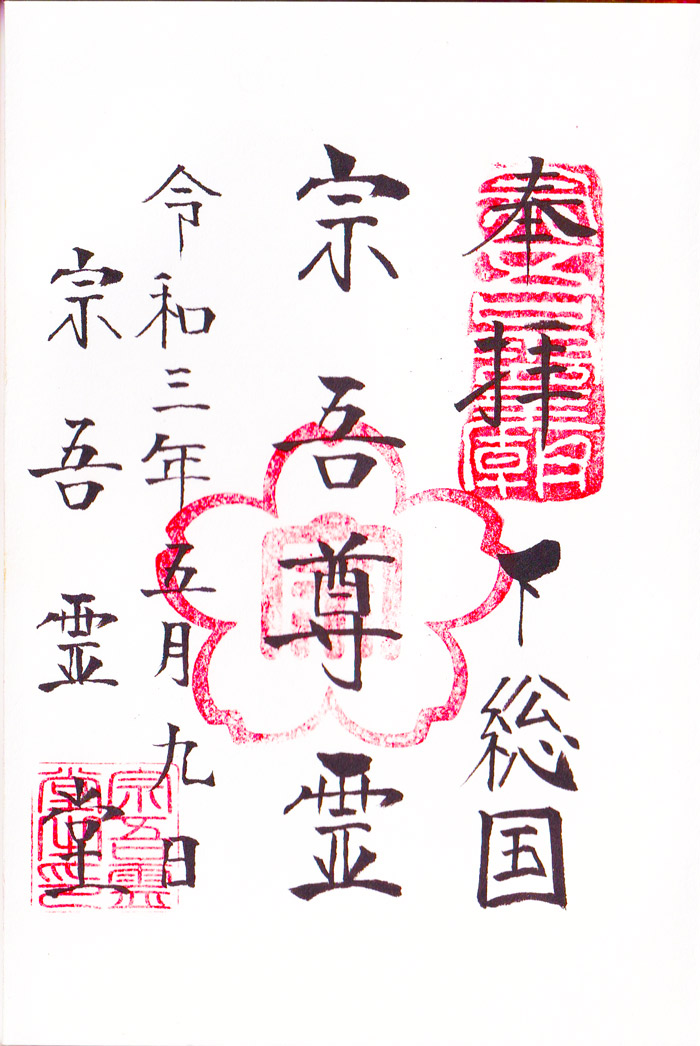 奉拝 下総国
宗吾尊霊
令和三年五月九日
宗吾霊堂